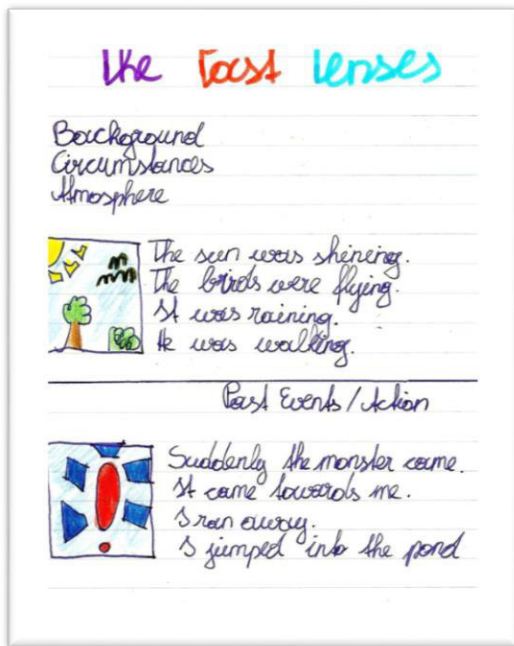 The Past Tenses
Background
Circumstances
Atmosphere
The sun was shining.
The birds were flying.
It was raining.
He was walking.
Past Events / Action
Suddenly the monster came.
It came towards me.
I ran away.
I jumped into the pond